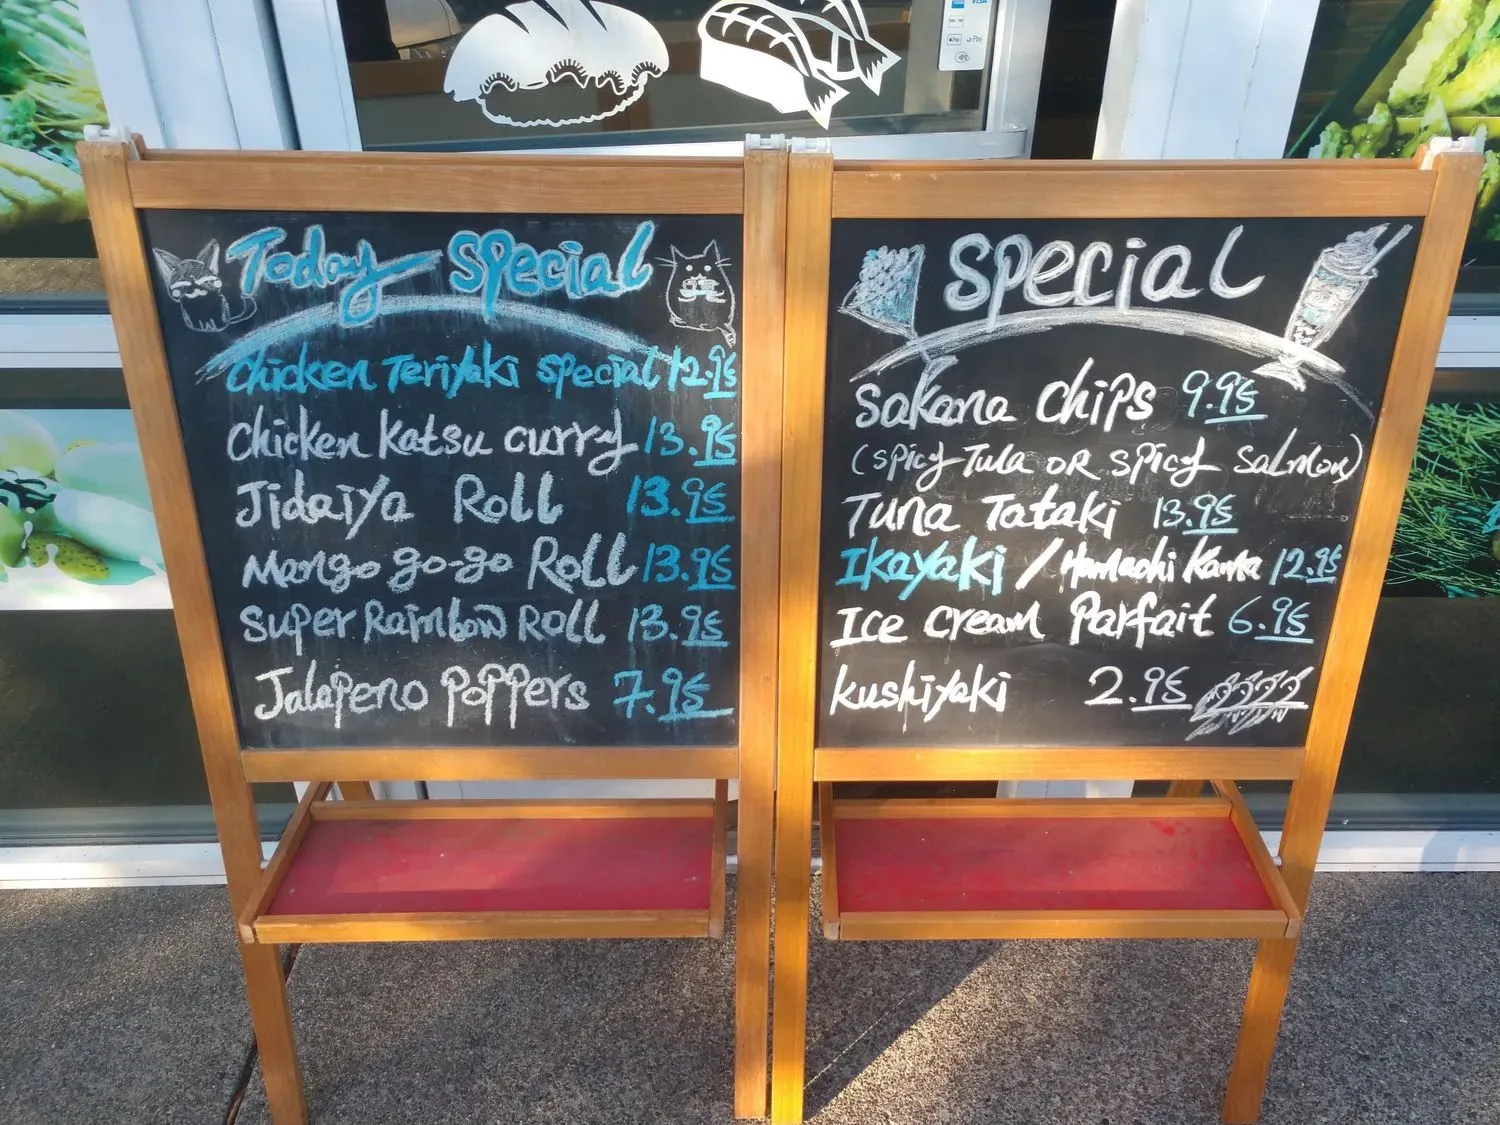 VISA
Pay
Pay
Today Special
Chicken Teriyaki Special 12.95
Chicken Katsu curry 13.95
Jidaiya Roll 13.95
Mango go-go Roll 13.95
Super Rainbow Roll 13.95
Jalapeno Poppers 7.95
Special
Sakana Chips 9.95
(Spicy Tuna OR Spicy Salmon)
Tuna Tataki 13.95
Ikayaki / Hamachi Kama 12.95
Ice Cream Parfait 6.95
kushiyaki 2.95